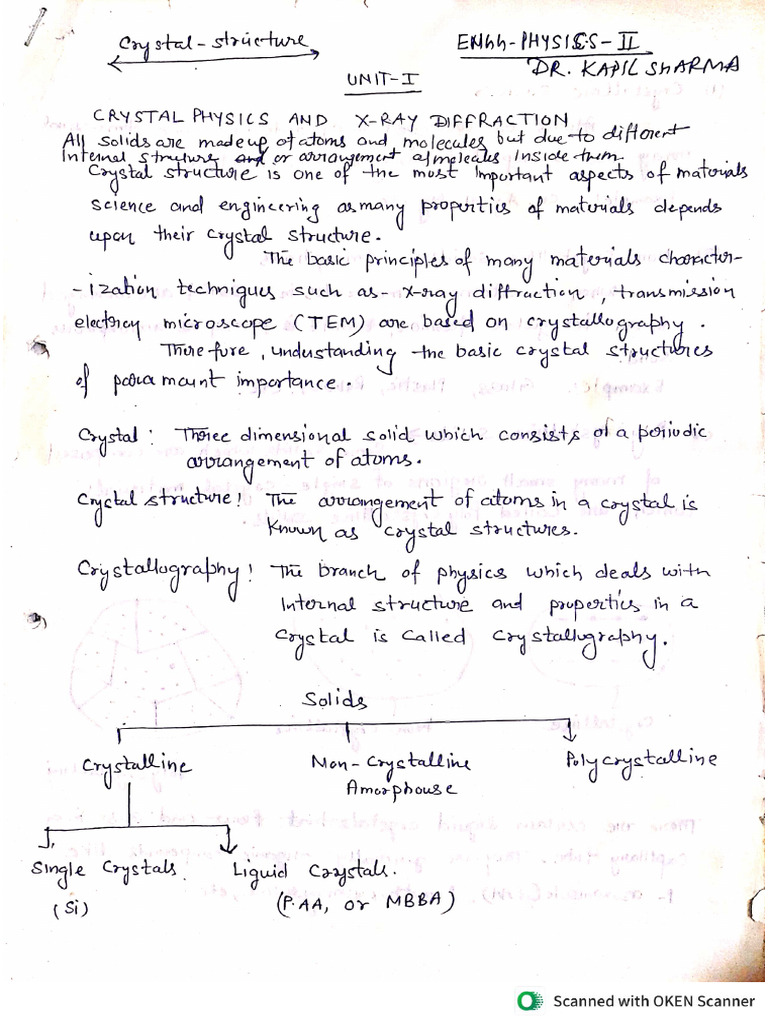 Crystal-structure
ENGG-PHYSICS-II
DR. KAPIL SHARMA
UNIT-I
CRYSTAL PHYSICS AND X-RAY DIFFRACTION
All solids are made up of atoms and molecules but due to different
Internal struture or arrangement of moleculs inside them
Crystal structure is one of the most important aspects of materials
science and engineering as many properties of materials depends
upon their crystal structure.
The basic principles of many materials character-
-ization techniques such as- x-ray diffraction, transmission
electron microscope (TEM) are based on crystallography.
Therefore, understanding the basic crystal structures
of paramount importance.
Crystal: Three dimensional solid which consists of a periodic
arrangement of atoms.
Crystal structure: The arrangement of atoms in a crystal is
known as crystal structures.
Crystallography: The branch of physics which deals with
internal structure and properties in a
crystal is called crystallography.
Solids
Crystalline Non-Crystalline Polycrystalline
Amorphouse
Single Crystals. Liquid Crystals.
(Si) (P.AA, or MBBA)
Scanned with OKEN Scanner